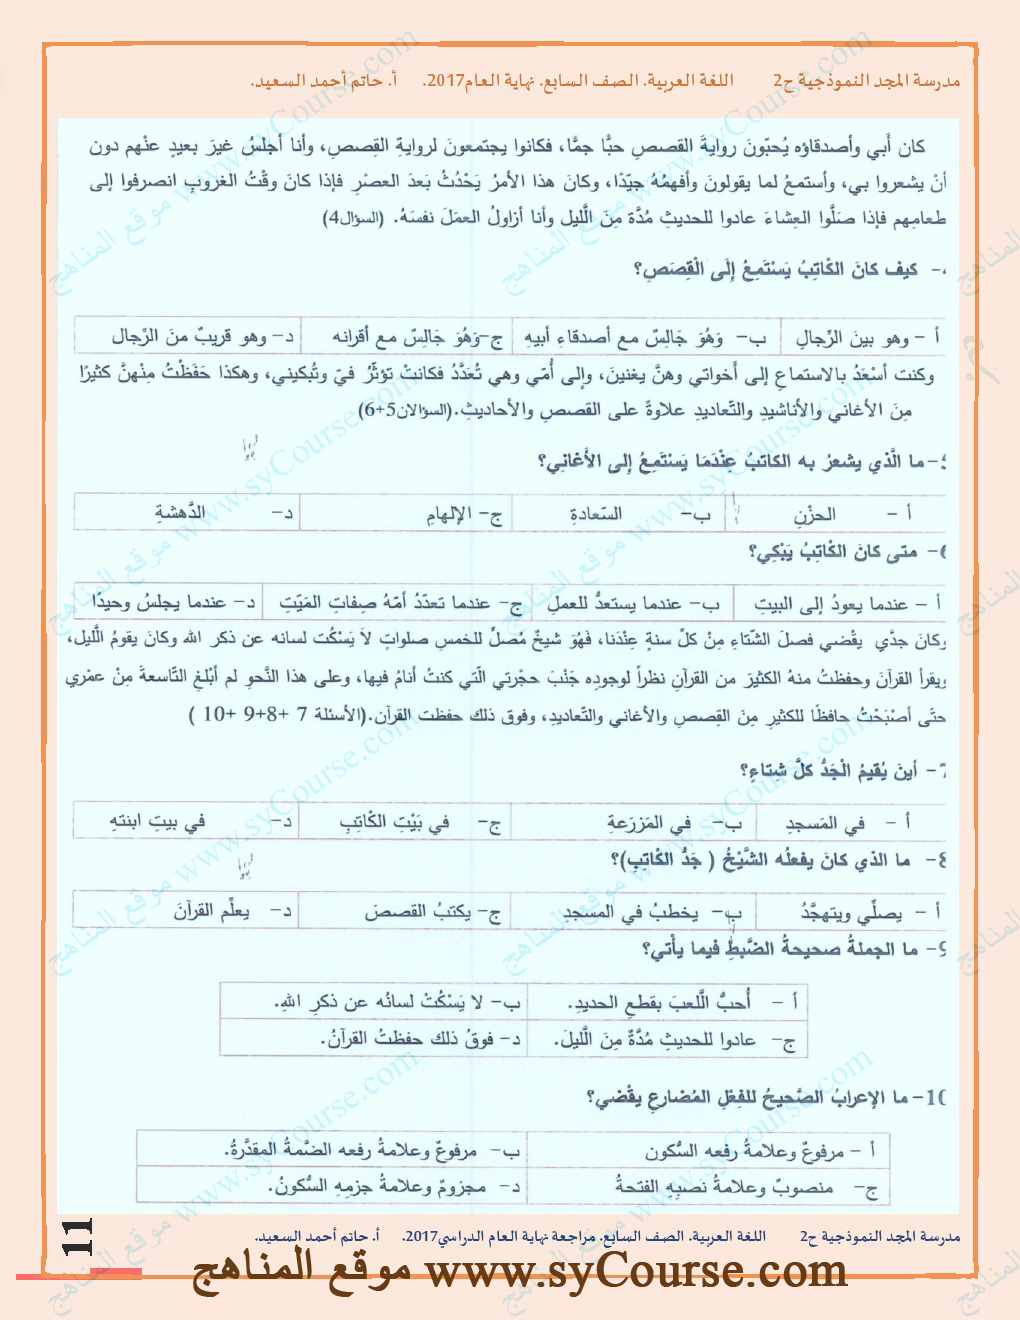 مدرسة المجد النموذجية ح2 اللغة العربية. الصف السابع. نهاية العام2017. أ. حاتم أحمد السعيد.
كان أَبي وأصدقاؤه يُحبّونَ روايةَ القصصِ حبًّا جمًّا، فكانوا يجتمعونَ لروايةِ القِصصِ، وأنا أجلسُ غيرَ بعيدٍ عنْهم دون
أنْ يشعروا بي، وأستمعُ لما يقولونَ وأفهمُهُ جيّدًا، وكان هذا الأمرُ يَحْدُثُ بَعدَ العصْرِ فإذا كانَ وقْتُ الغروبِ انصرفوا إلى
طعامِهم فإذا صَلَّوا العِشاءَ عادوا للحديثِ مُدَّة مِنَ الَّليل وأنا أزاولُ العمَلَ نفسَهُ. (السؤال4)
4- كيف كانَ الكْاتِبُ يَسْتَمِعُ إلَى الْقِصَصِ؟
أ - وهو بينَ الرِّجالِ ب- وَهُوَ جَالِسٌ مع أصدقاءِ أبيهِ ج-وَهُوَ جَالِسٌ مع أقرانه د- وهو قريبٌ منَ الرِّجال
وكنت أسْعَدُ بالاستماعِ إلى أَخواتي وهنَّ يغنينَ، وإلى أُمّي وهي تُعَدَّدُ فكانتْ تؤثّرُ فيّ وتُبكيني، وهكذا حَفَظْتُ مِنْهنَّ كثيرًا
مِنَ الأغاني والأناشيدِ والتّعاديدِ علاوةً على القصصِ والأحاديثِ.(السؤالان5+6)
5- ما الَّذي يشعرُ به الكاتبُ عِنْدَمَا يَسْتَمِعُ إلى الأَغانِي؟
أ - الحزْنِ ب- السّعادةِ ج- الإلهامِ د- الدَّهشةِ
6- متى كانَ الكْاتِبُ يَبْكِي؟
أ - عندما يعودُ إلى البيتِ ب- عندما يستعدُّ للعملِ ج- عندما تعدّدُ أمّهُ صفاتِ المَيّتِ د- عندما يجلسُ وحيدًا
وكانَ جدَّي يقْضي فصلَ الشّتاءِ مِنْ كلِّ سنةٍ عِنْدَنا، فَهْوَ شيخٌ مُصلٍّ للخمسِ صلواتٍ لاَ يَسْكُت لسانه عن ذكر الله وكانَ يقومُ الَّليل،
ويقرأ القرآنَ وحفظتُ منهُ الكثيرَ من القرآنِ نظراً لوجودِه جَنْبَ حجْرتي الّتي كنتُ أنامُ فيها، وعلى هذا النَّحوِ لم أبْلغِ التّاسعةَ مِنْ عمْري
حتّى أصْبَحْتُ حافظًا للكثيرِ مِنَ القِصصِ والأغاني والتّعاديدِ، وفوق ذلك حفظت القرآن.(الأسئلة 7 +8+9 +10 )
7- أينَ يُقيمُ الْجَدُّ كلَّ شتاءٍ؟
أ - في المَسجدِ ب- في المَزرَعةِ ج- في بَيْتِ الكْاتِبِ د- في بيتِ ابنتهِ
8- ما الذي كانَ يفعلُه الشَّيْخُ ( جَدُّ الكْاتِبِ)؟
أ - يصلِّي ويتهجَّدُ ب- يخطبُ في المسجدِ ج- يكتبُ القصصَ د- يعلِّم القرآنَ
9- ما الجملةُ صحيحةُ الضَّبطِ فيما يأْتي؟
أ - أُحبُّ الَّلعبَ بقطعِ الحديدِ. ب- لا يَسْكُتْ لسانُه عن ذكرِ اللهِ.
ج- عادوا للحديثِ مُدَّةٌ مِنَ الَّليلَ. د- فوقُ ذلك حفظتُ القرآنُ.
10- ما الإعرابُ الصَّحيحُ للفِعْلِ المُضارعِ يقْضي؟
أ - مرفوعٌ وعلامةُ رفعه السُّكون ب- مرفوعٌ وعلامةُ رفعه الضّمةُ المقدَّرةُ.
ج- منصوبٌ وعلامةُ نصبِهِ الفتحةُ د- مجزومٌ وعلامةُ جزمِهِ السُّكونُ.
11
مدرسة المجد النموذجية ح2 اللغة العربية. الصف السابع. مراجعة نهاية العام الدراسي2017. أ. حاتم أحمد السعيد.
موقع المناهج www.syCourse.com